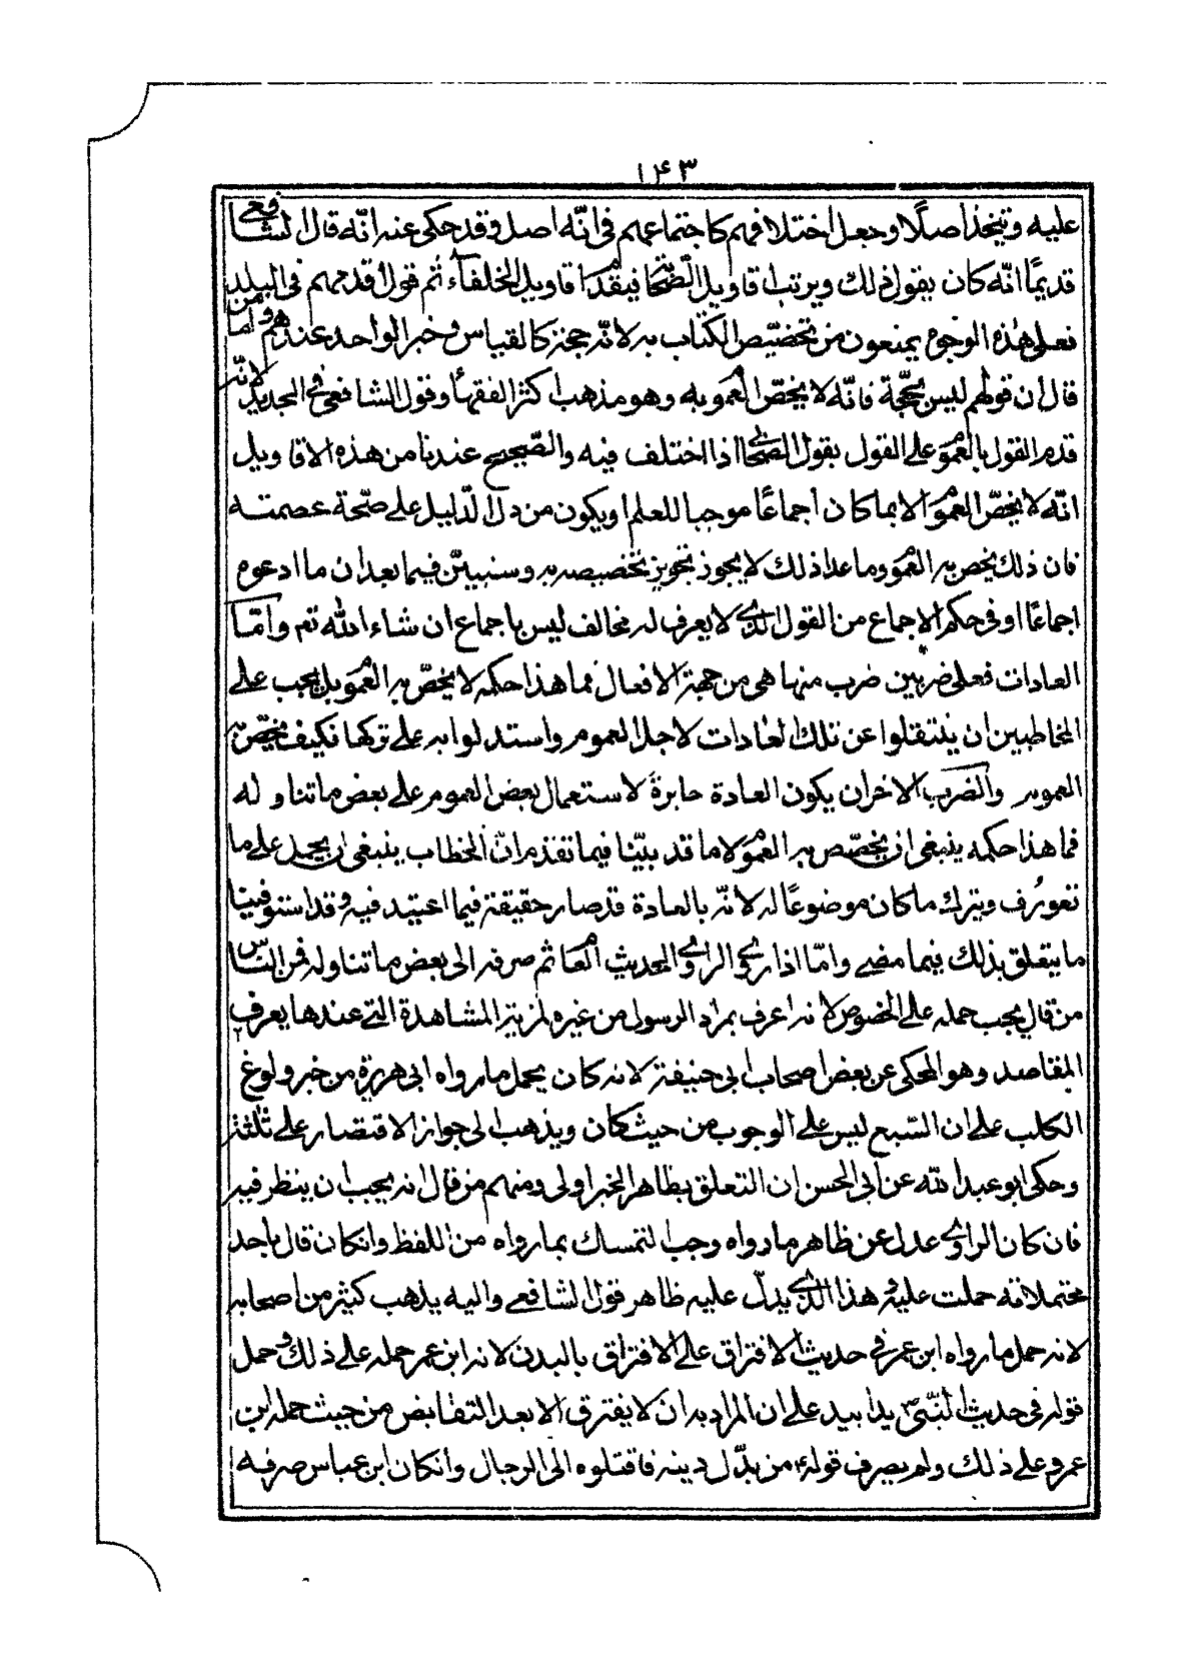 ١۴٣
عليه ويتخذ اصلًا وجعل اختلافهم كاجتماعهم فى انّه اصل وقد حكى عنه انّه قال الشافعي
قديمًا انّه كان يقول ذلك ويرتب اقاويل الصّحابة فيقدم اقاويل الخلفاء ثم قول اقدمهم فى البلد
فعلى هذه الوجوه يمنعون من تخصيص الكتاب به لانّه حجة كالقياس وخبر الواحد عندهم واما من
قال ان قولهم ليس بحجّة فانّه لا يخصّ العموم به وهو مذهب اكثر الفقهاء وقول الشافعى فى الجديد لانّه
قدم القول بالعموم على القول بقول الصّحابى اذا اختلف فيه والصّحيح عندنا من هذه الاقاويل
انّه لا يخصّ العموم الا بما كان اجماعًا موجبا للعلم او يكون من دلّ الدّليل على صحّة عصمته
فان ذلك يخص به العموم وما عدا ذلك لا يجوز تجويز تخصيصه به وسنبيّن فيما بعد ان ما ادعوه
اجماعًا او فى حكم الاجماع من القول الذى لا يعرف له مخالف ليس باجماع ان شاء الله تع وامّا
العادات فعلى ضربين ضرب منها هى من جهة الافعال فما هذا حكمه لا يخصّ به العموم بل يجب على
المخاطبين ان ينتقلوا عن تلك العادات لاجل العموم واستدلوا به على تركها فكيف يخصّ به
العموم والضّرب الاخر ان يكون العادة جابرةً لاستعمال بعض العموم على بعض ما تناوله
فما هذا حكمه ينبغى ان يخصّص به العموم لما قد بيّنا فيما تقدم انّ الخطاب ينبغى ان يحمل على ما
تعورف ويترك ما كان موضوعًا له لانّه بالعادة قد صار حقيقة فيما اعتيد فيه وقد استوفينا
ما يتعلق بذلك فيما مضى وامّا اذا روى الراوى الحديث العام ثم صرفه الى بعض ما تناوله فمن النّاس
من قال يجب حمله على الخصوص لانه اعرف بمراد الرسول من غيره لمزية المشاهدة التى عندها يعرف
المقاصد وهو المحكى عن بعض اصحاب ابى حنيفة لانه كان يحمل ما رواه ابى هريرة من خبر ولوغ
الكلب على ان السّبع ليس على الوجوب من حيث كان ويذهب الى جواز الاقتصار على ثلثة
وحكى ابو عبد الله عن ابى الحسن ان التعلق بظاهر الخبر اولى ومنهم من قال انه يجب ان ينظر فيه
فان كان الراوى عدل عن ظاهر ما رواه وجب التمسك بما رواه من اللفظ وانكان قال باحد
محتملاته حملت عليه وهذا الذى يدلّ عليه ظاهر قول الشافعى واليه يذهب كثير من اصحابه
لانه حمل ما رواه ابن عمر فى حديث الافتراق على الافتراق بالبدن لانه ابن عمر حمله على ذلك وحمل
قوله فى حديث النّبى يدا بيد على ان المراد به ان لا يفترق الا بعد التقابض من حيث حمله ابن
عمر على ذلك ولم يصرف قوله من بدّل دينه فاقتلوه الى الرجال وانكان ابن عباس صرفه